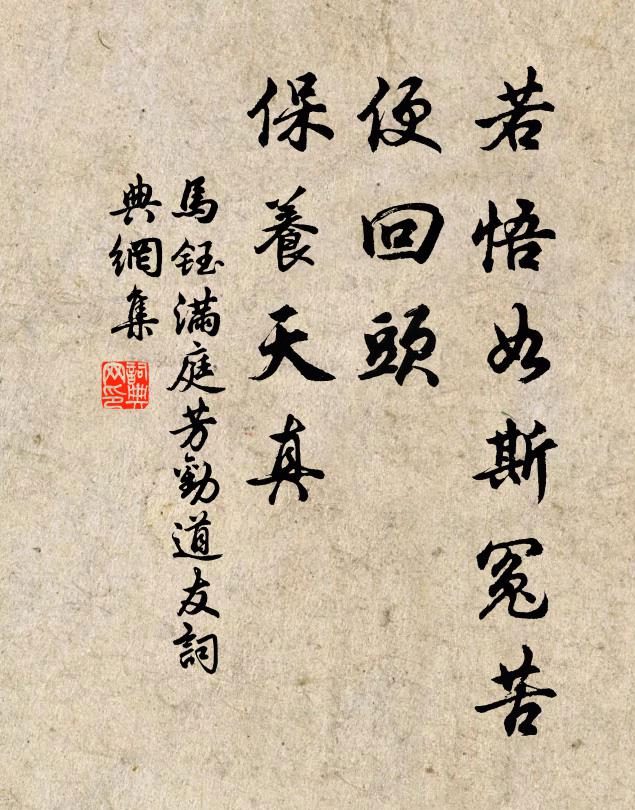 若悟如斯冤苦
便回頭
保養天真
馬鈺滿庭芳勸道友詞
典網集
詞典
网印